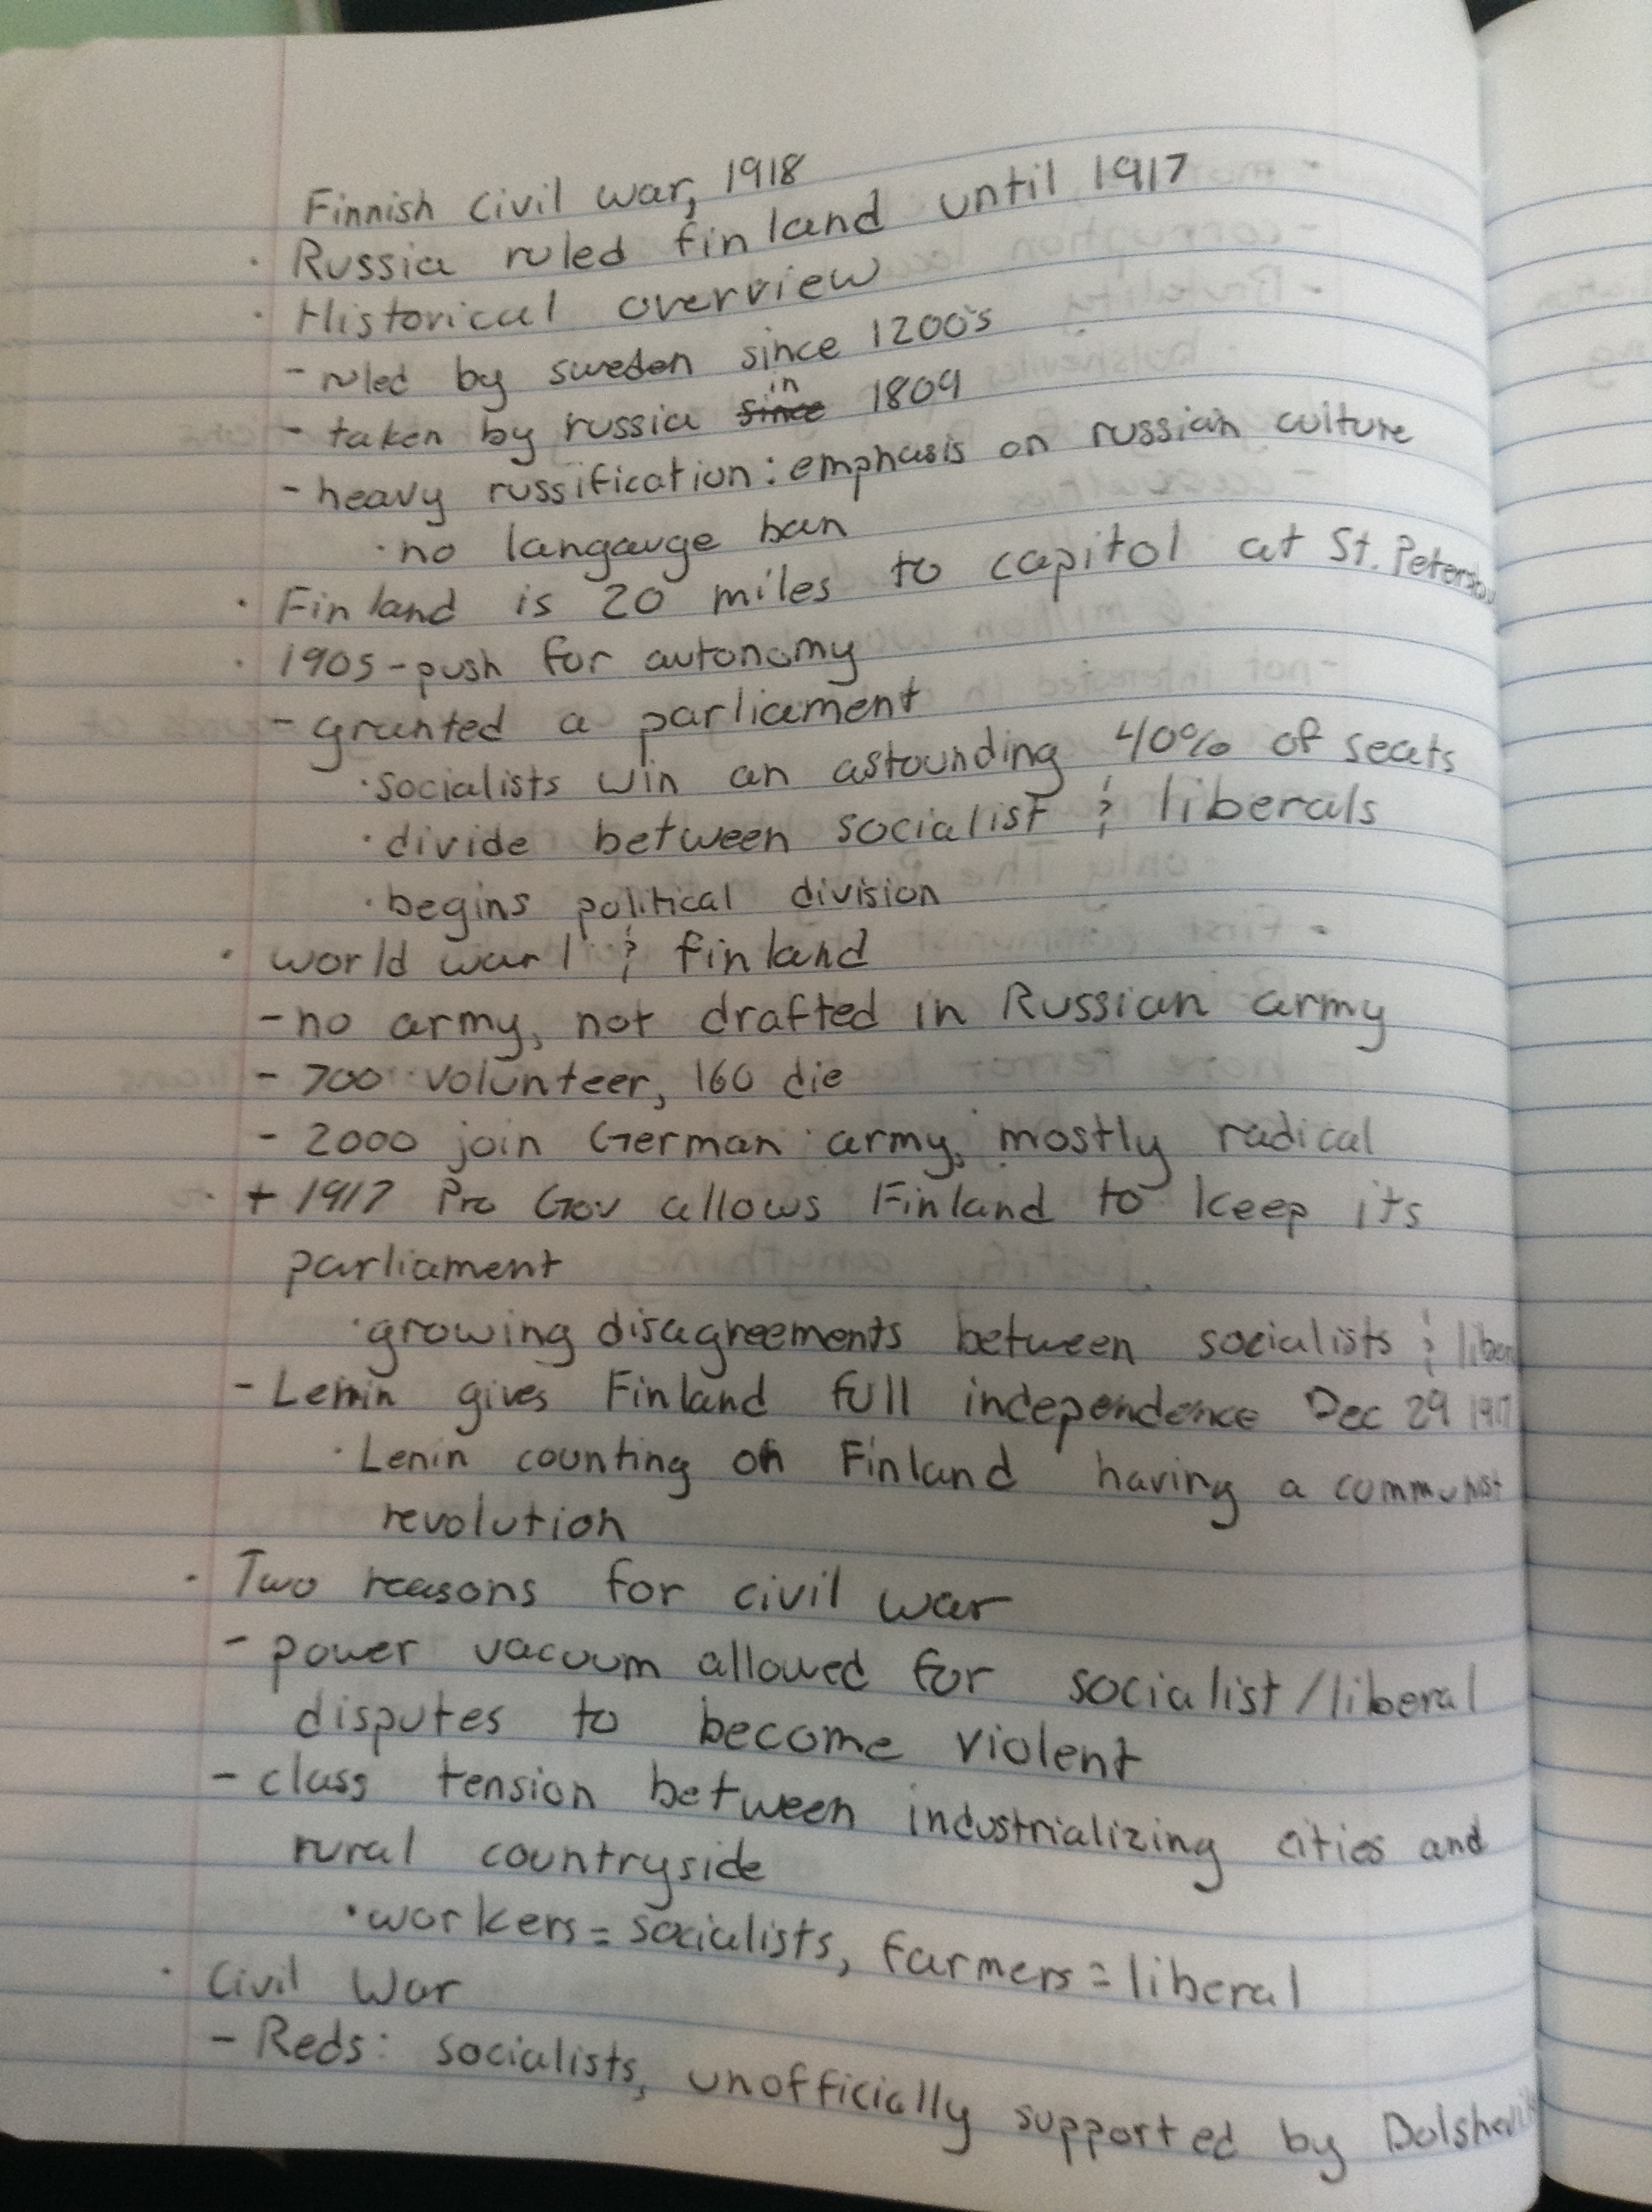 Finnish Civil war, 1918
· Russia ruled finland until 1917
· Historical overview
- ruled by sweden since 1200's
- taken by russia ~~since~~ in 1809
- heavy russification: emphasis on russian culture
· no langauge ban
· Finland is 20 miles to capitol at St. Petersbu
· 1905 - push for autonomy
- granted a parliament
· socialists win an astounding 40% of seats
· divide between socialist & liberals
· begins political division
· world war 1 & finland
- no army, not drafted in Russian army
- 700 volunteer, 160 die
- 2000 join German army, mostly radical
· + 1917 Pro Gov allows Finland to keep its
parliament
· growing disagreements between socialists & liber
- Lenin gives Finland full independence Dec 29 1917
· Lenin counting on Finland having a communist
revolution
· Two reasons for civil war
- power vacuum allowed for socialist/liberal
disputes to become violent
- class tension between industrializing cities and
rural countryside
· workers = socialists, farmers = liberal
· Civil War
- Reds: socialists, unofficially supported by Bolshevik